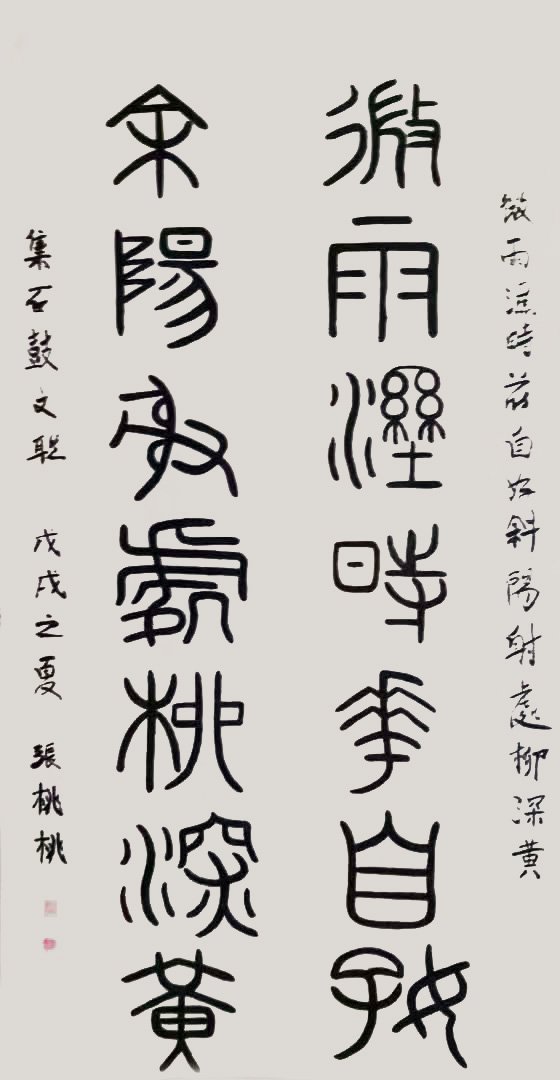 微雨溼時花自好斜陽射處柳深黃
微雨溼時華自好
余陽射處柳深黃
集石鼓文聯 戊戌之夏 張桃桃